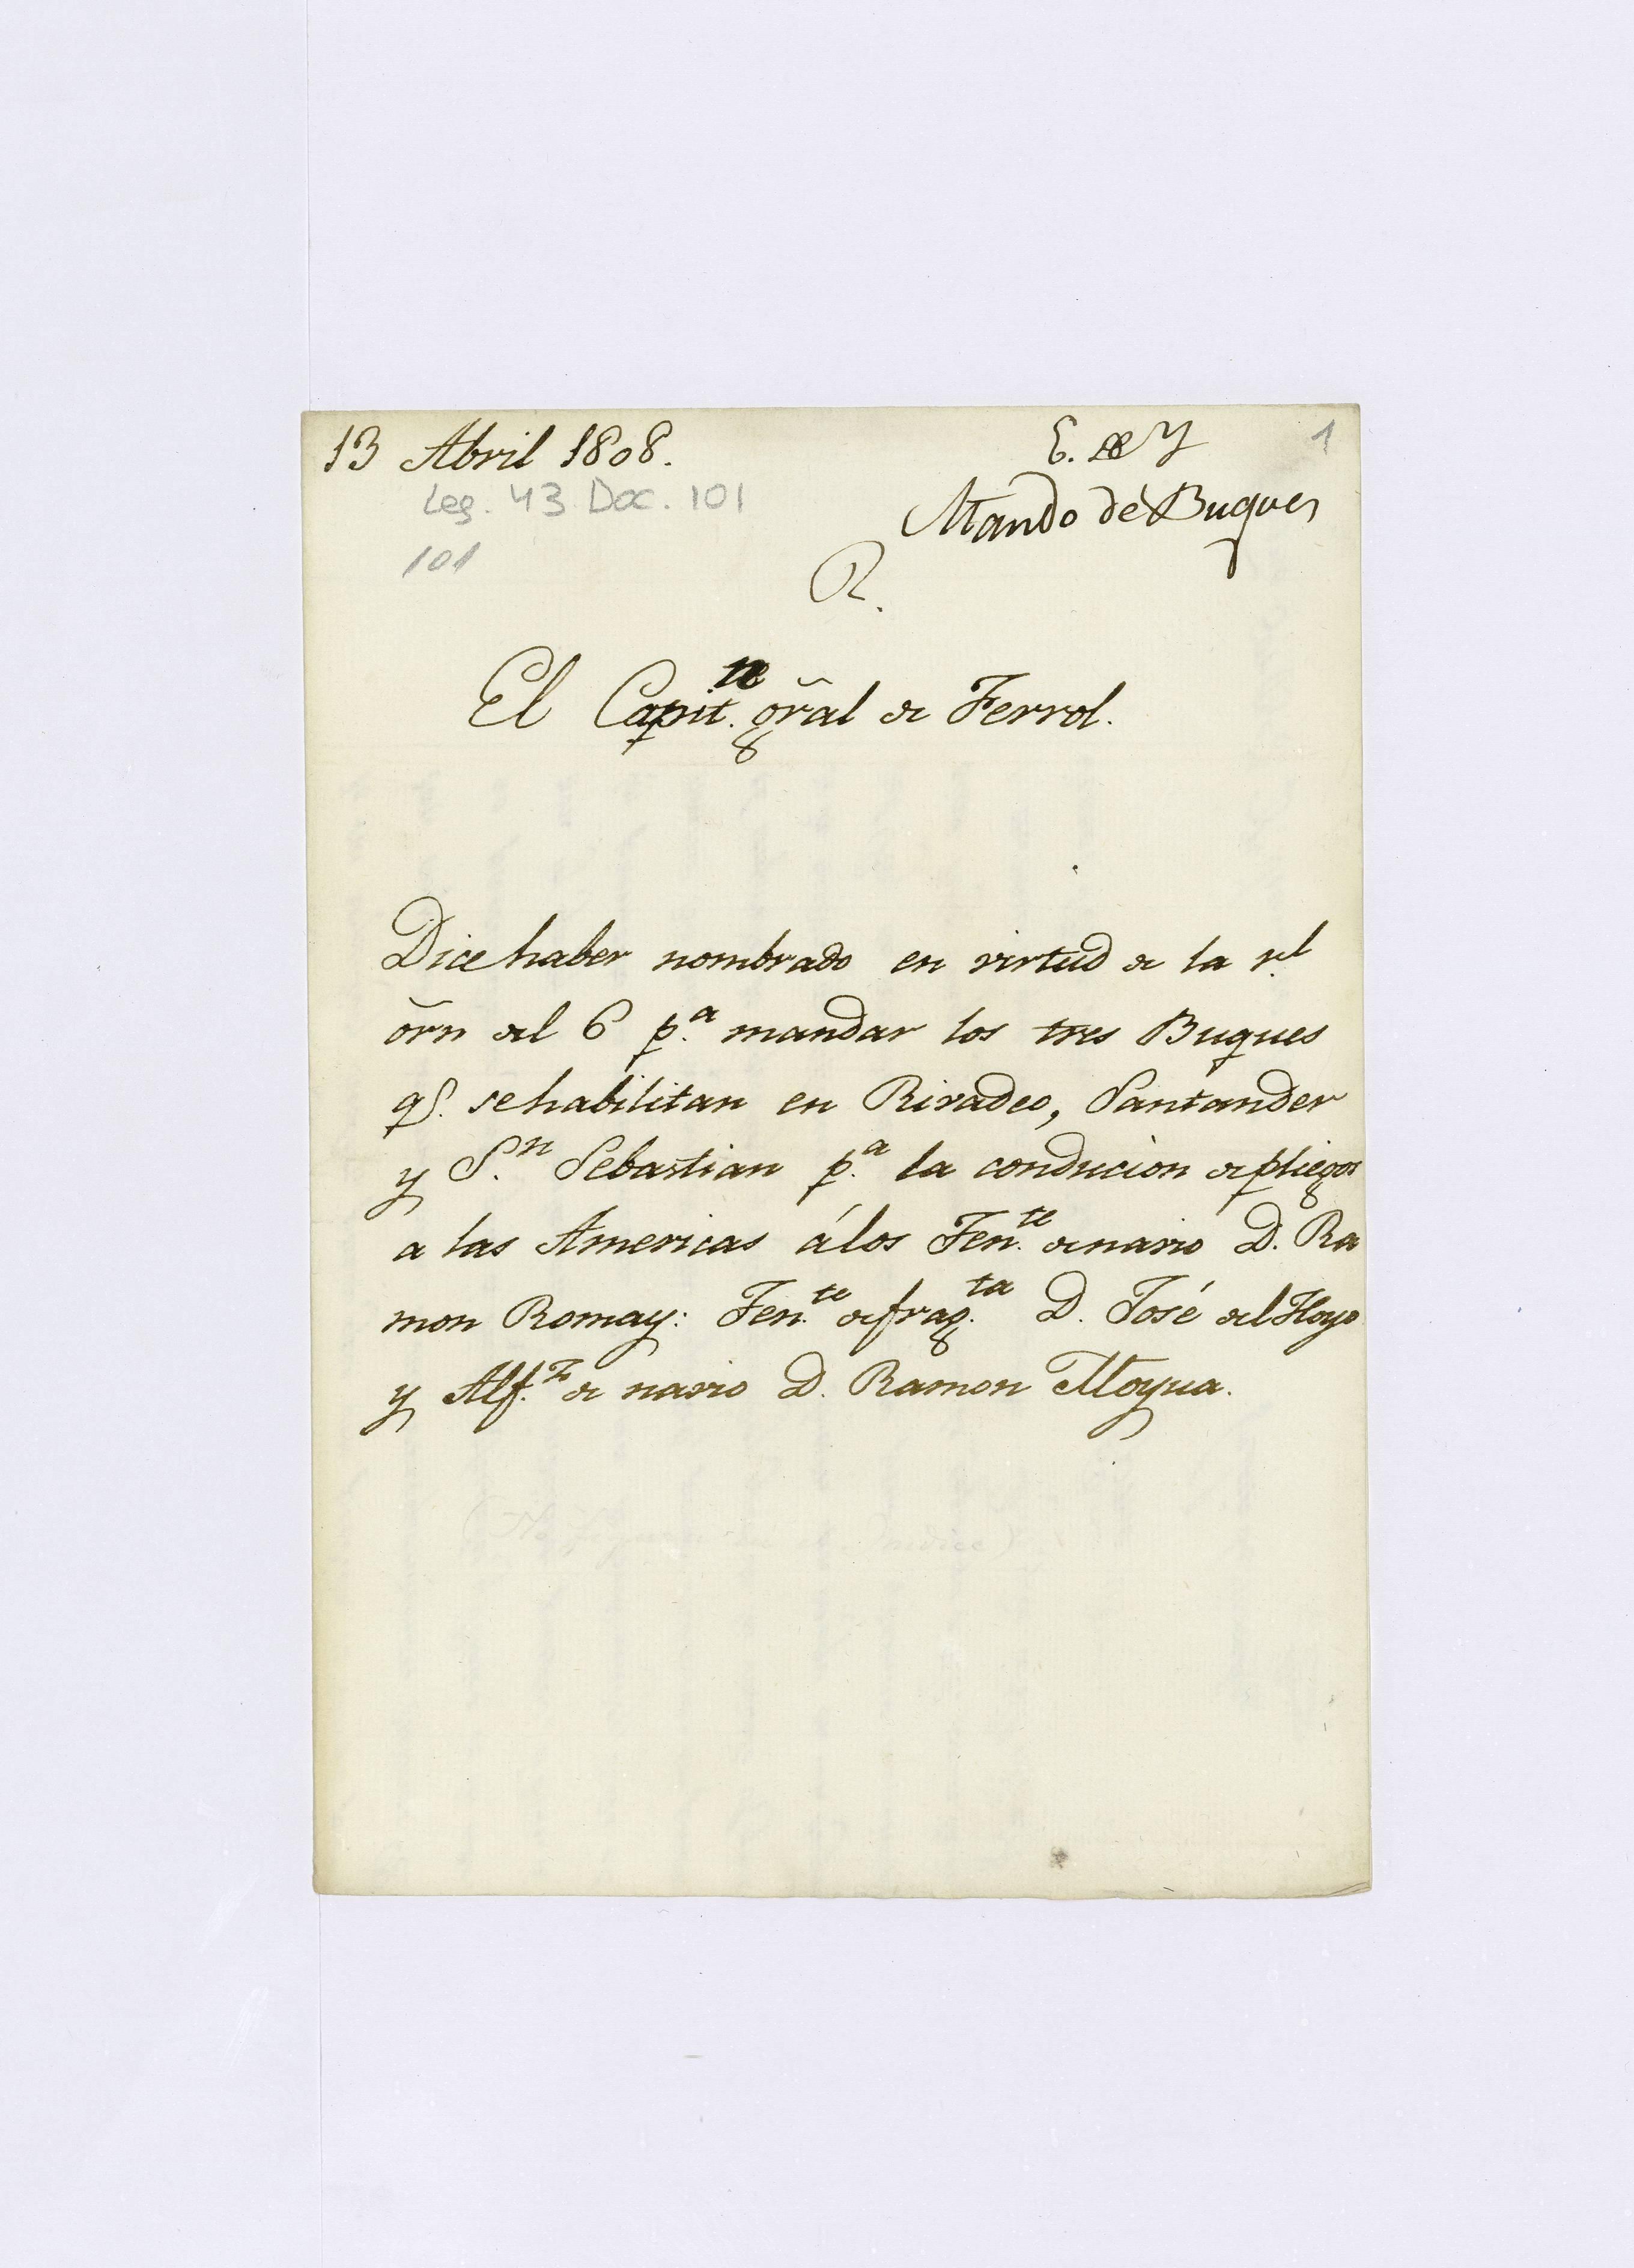 13 Abril 1808.
E. de Y
1
Leg. 43 Doc. 101
Mando de Buques
101
R.
El Capit.n gr̃al de Ferrol.
Dice haber nombrado en virtud de la r.l
or̃n del 6 p.a mandar los tres Buques
qe. se habilitan en Rivadeo, Santander
y S.n Sebastian p.a la conducion de pliegos
a las Americas á los Ten.te de navio D. Ra
mon Romay: Ten.te de frag.ta D. José del Hoyo
y Alf.z de navio D. Ramon Moyua.